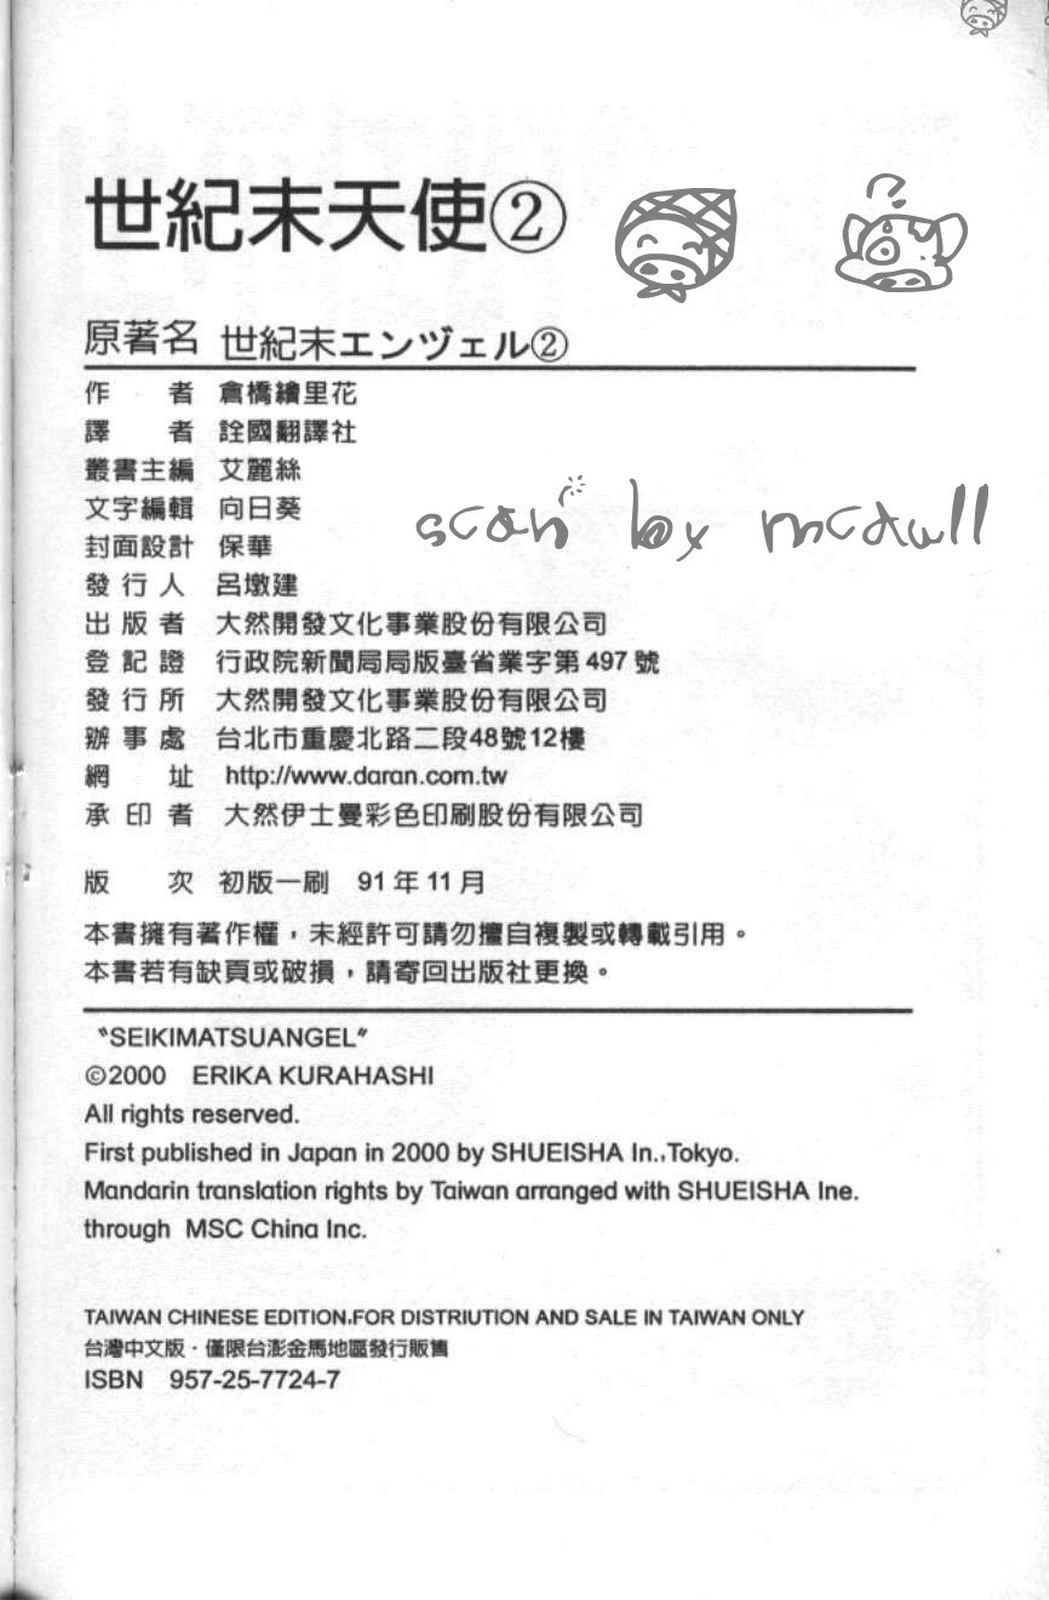 世紀末天使②
原著名 世紀末エンヅェル②
作者 倉橋繪里花
譯者 詮國翻譯社
叢書主編 艾麗絲
文字編輯 向日葵
scan by mcdull
封面設計 保華
發行人 呂墩建
出版者 大然開發文化事業股份有限公司
登記證 行政院新聞局局版臺省業字第497號
發行所 大然開發文化事業股份有限公司
辦事處 台北市重慶北路二段48號12樓
網址 http://www.daran.com.tw
承印者 大然伊士曼彩色印刷股份有限公司
版次 初版一刷 91年11月
本書擁有著作權，未經許可請勿擅自複製或轉載引用。
本書若有缺頁或破損，請寄回出版社更換。
〝SEIKIMATSUANGEL〞
©2000 ERIKA KURAHASHI
All rights reserved.
First published in Japan in 2000 by SHUEISHA In.,Tokyo.
Mandarin translation rights by Taiwan arranged with SHUEISHA Ine.
through MSC China Inc.
TAIWAN CHINESE EDITION,FOR DISTRIUTION AND SALE IN TAIWAN ONLY
台灣中文版・僅限台澎金馬地區發行販售
ISBN 957-25-7724-7